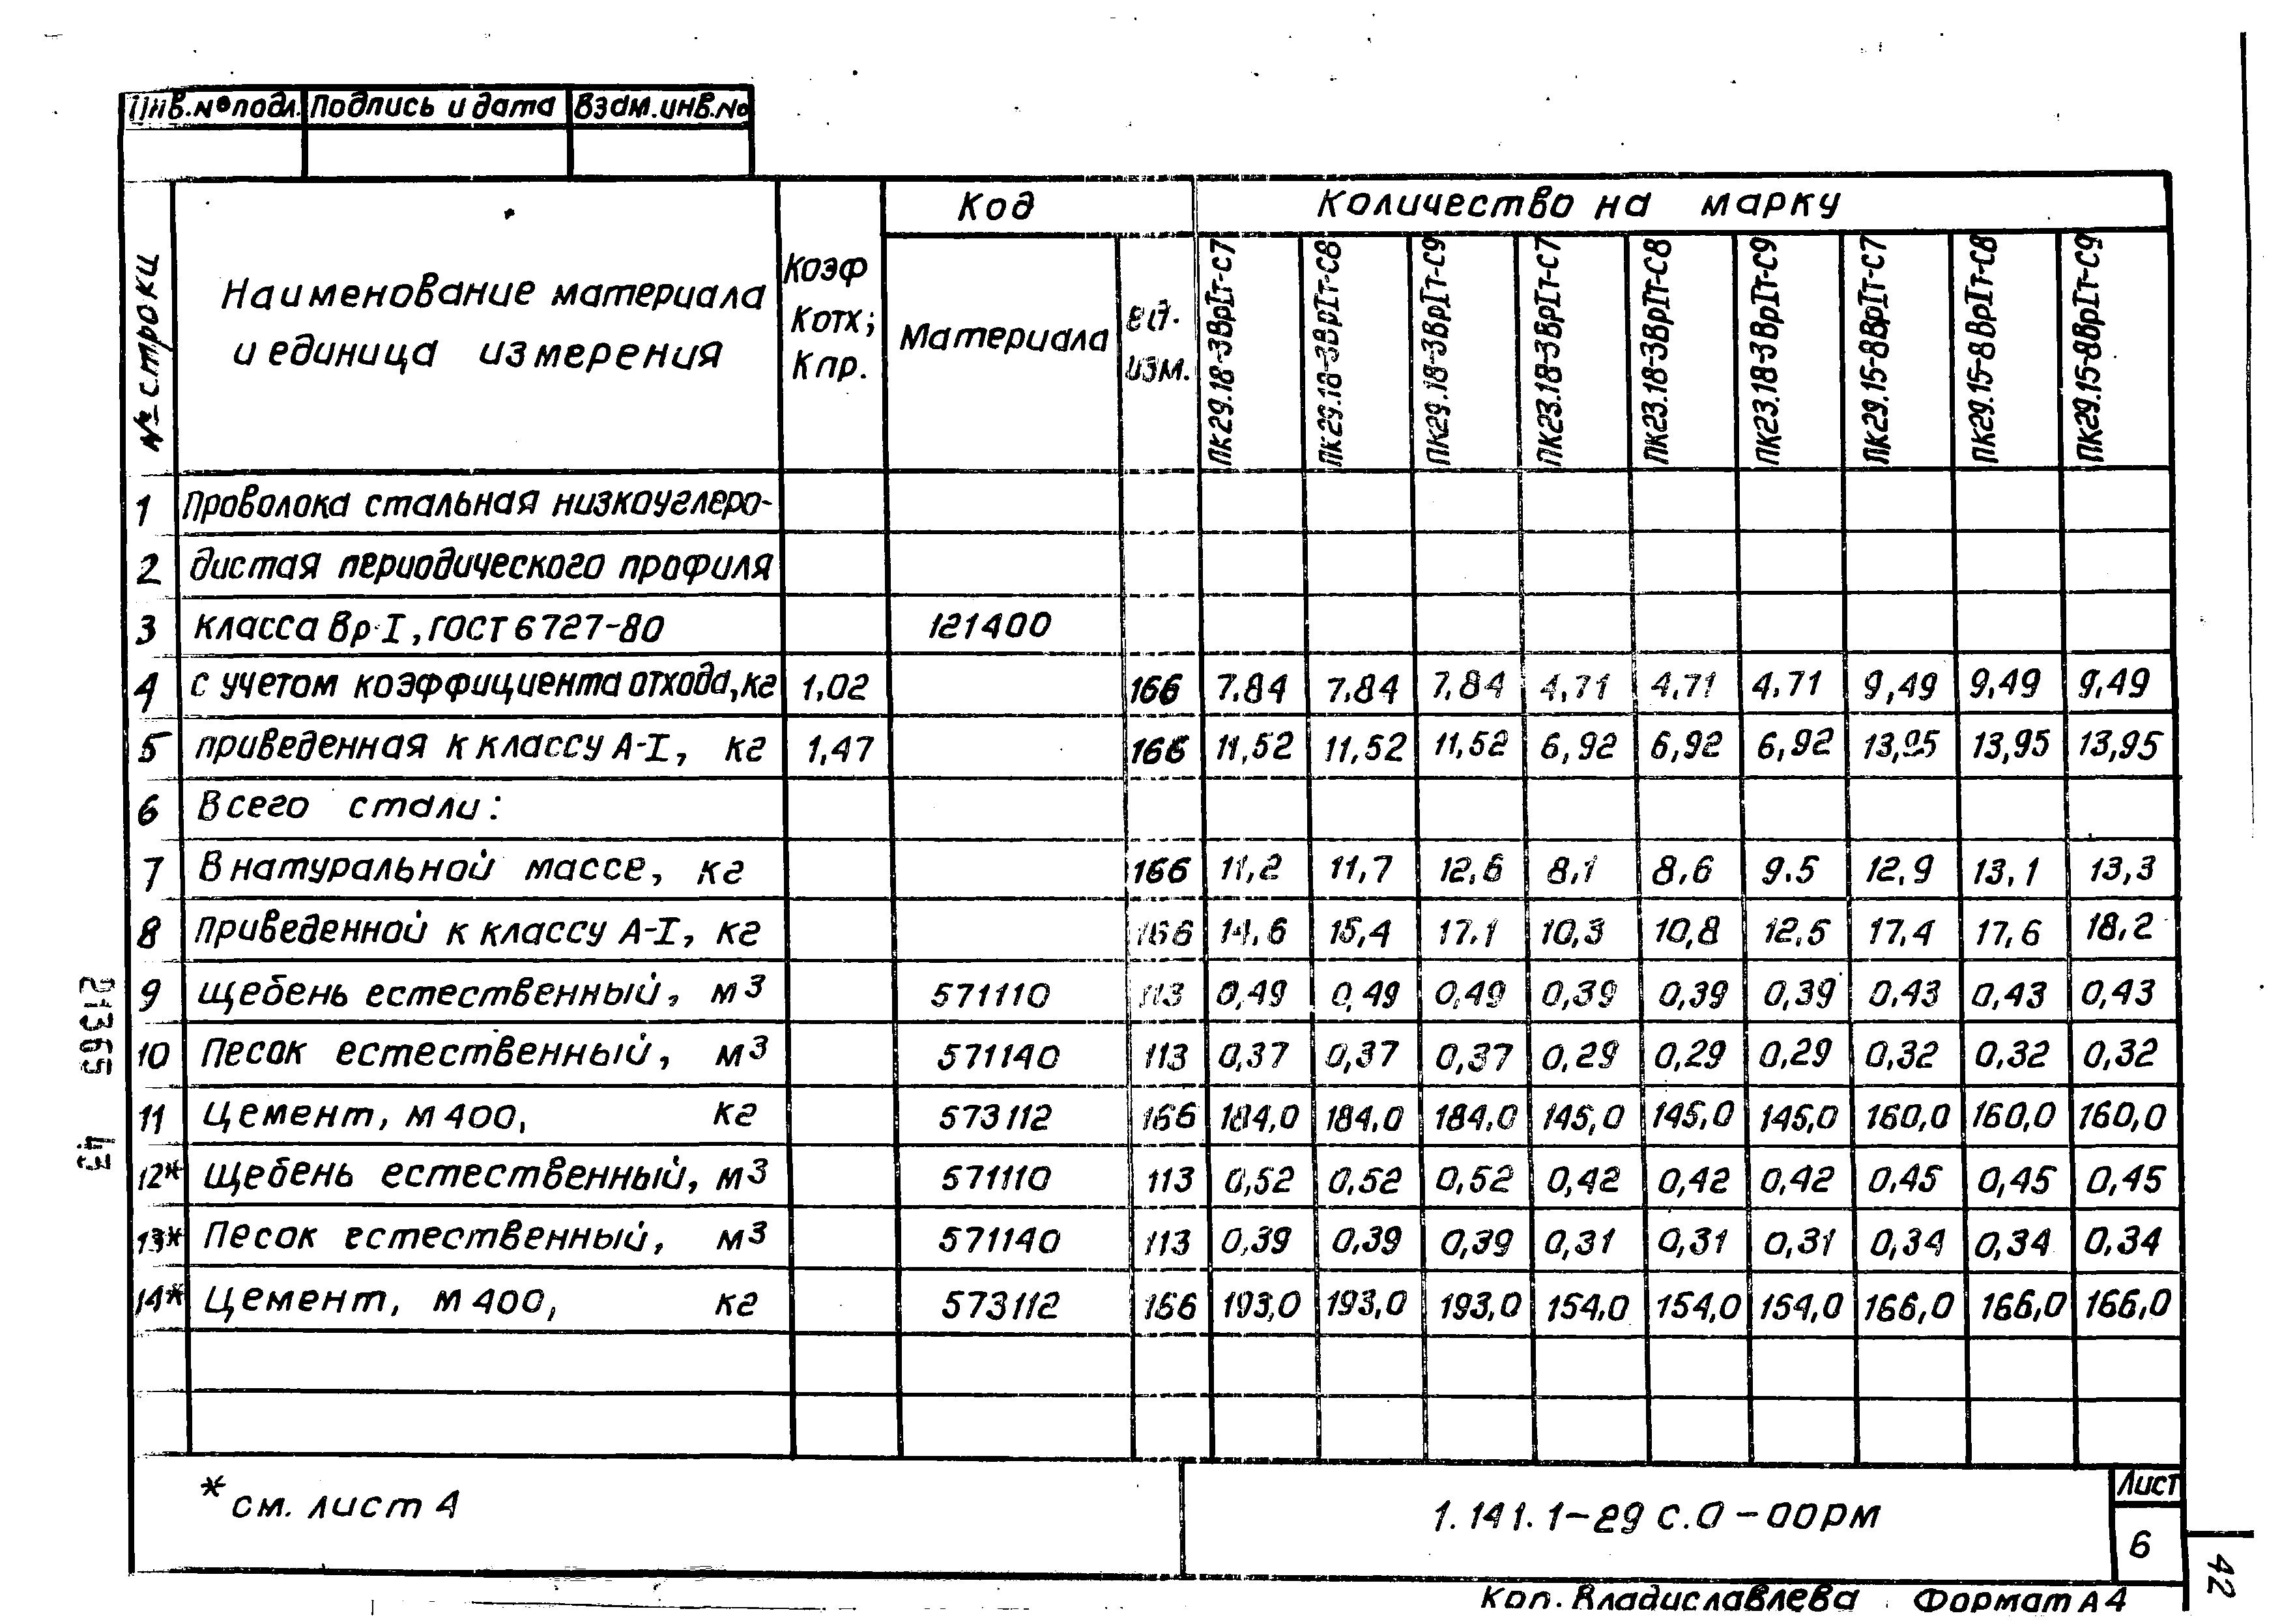 Инв.№ подл. Подпись и дата Взам.инв.№
№ строки
Наименование материала
и единица измерения
Коэф
Котх;
Кпр.
Код
Материала
ед.
изм.
Количество на марку
ПК29.18-3ВрIт-С7
ПК29.18-3ВрIт-С8
ПК29.18-3ВрIт-С9
ПК23.18-3ВрIт-С7
ПК23.18-3ВрIт-С8
ПК23.18-3ВрIт-С9
ПК29.15-8ВрIт-С7
ПК29.15-8ВрIт-С8
ПК29.15-8ВрIт-С9
1 Проволока стальная низкоуглеро-
2 дистая периодического профиля
3 класса Вр-I, ГОСТ 6727-80 121400
4 с учетом коэффициента отхода, кг 1,02 166 7,84 7,84 7,84 4,71 4,71 4,71 9,49 9,49 9,49
5 приведенная к классу А-I, кг 1,47 166 11,52 11,52 11,52 6,92 6,92 6,92 13,95 13,95 13,95
6 Всего стали:
7 В натуральной массе, кг 166 11,2 11,7 12,6 8,1 8,6 9.5 12,9 13,1 13,3
8 Приведенной к классу А-I, кг 166 14,6 15,4 17,1 10,3 10,8 12,5 17,4 17,6 18,2
9 щебень естественный, м3 571110 113 0,49 0,49 0,49 0,39 0,39 0,39 0,43 0,43 0,43
10 Песок естественный, м3 571140 113 0,37 0,37 0,37 0,29 0,29 0,29 0,32 0,32 0,32
11 Цемент, М400, кг 573112 166 184,0 184,0 184,0 145,0 145,0 145,0 160,0 160,0 160,0
12* щебень естественный, м3 571110 113 0,52 0,52 0,52 0,42 0,42 0,42 0,45 0,45 0,45
13* Песок естественный, м3 571140 113 0,39 0,39 0,39 0,31 0,31 0,31 0,34 0,34 0,34
14* Цемент, М400, кг 573112 166 193,0 193,0 193,0 154,0 154,0 154,0 166,0 166,0 166,0
21365 43
* см. лист 4
1.141.1-29 с.0-00РМ
Лист
6
42
Коп. Владиславлева Формат А4